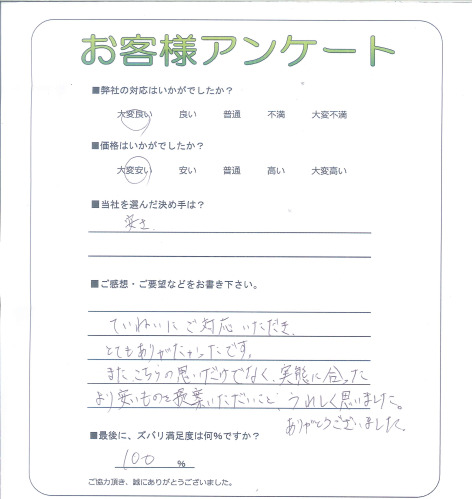 お客様アンケート
■弊社の対応はいかがでしたか？
大変良い 良い 普通 不満 大変不満
■価格はいかがでしたか？
大変安い 安い 普通 高い 大変高い
■当社を選んだ決め手は？
安さ.
■ご感想・ご要望などをお書き下さい。
ていねいにご対応いただき、
とてもありがたかったです。
またこちらの思いだけでなく、実態に合った
より安いものを提案いただいたこと、うれしく思いました。
ありがとうございました。
■最後に、ズバリ満足度は何%ですか？
100 %
ご協力頂き、誠にありがとうございました。